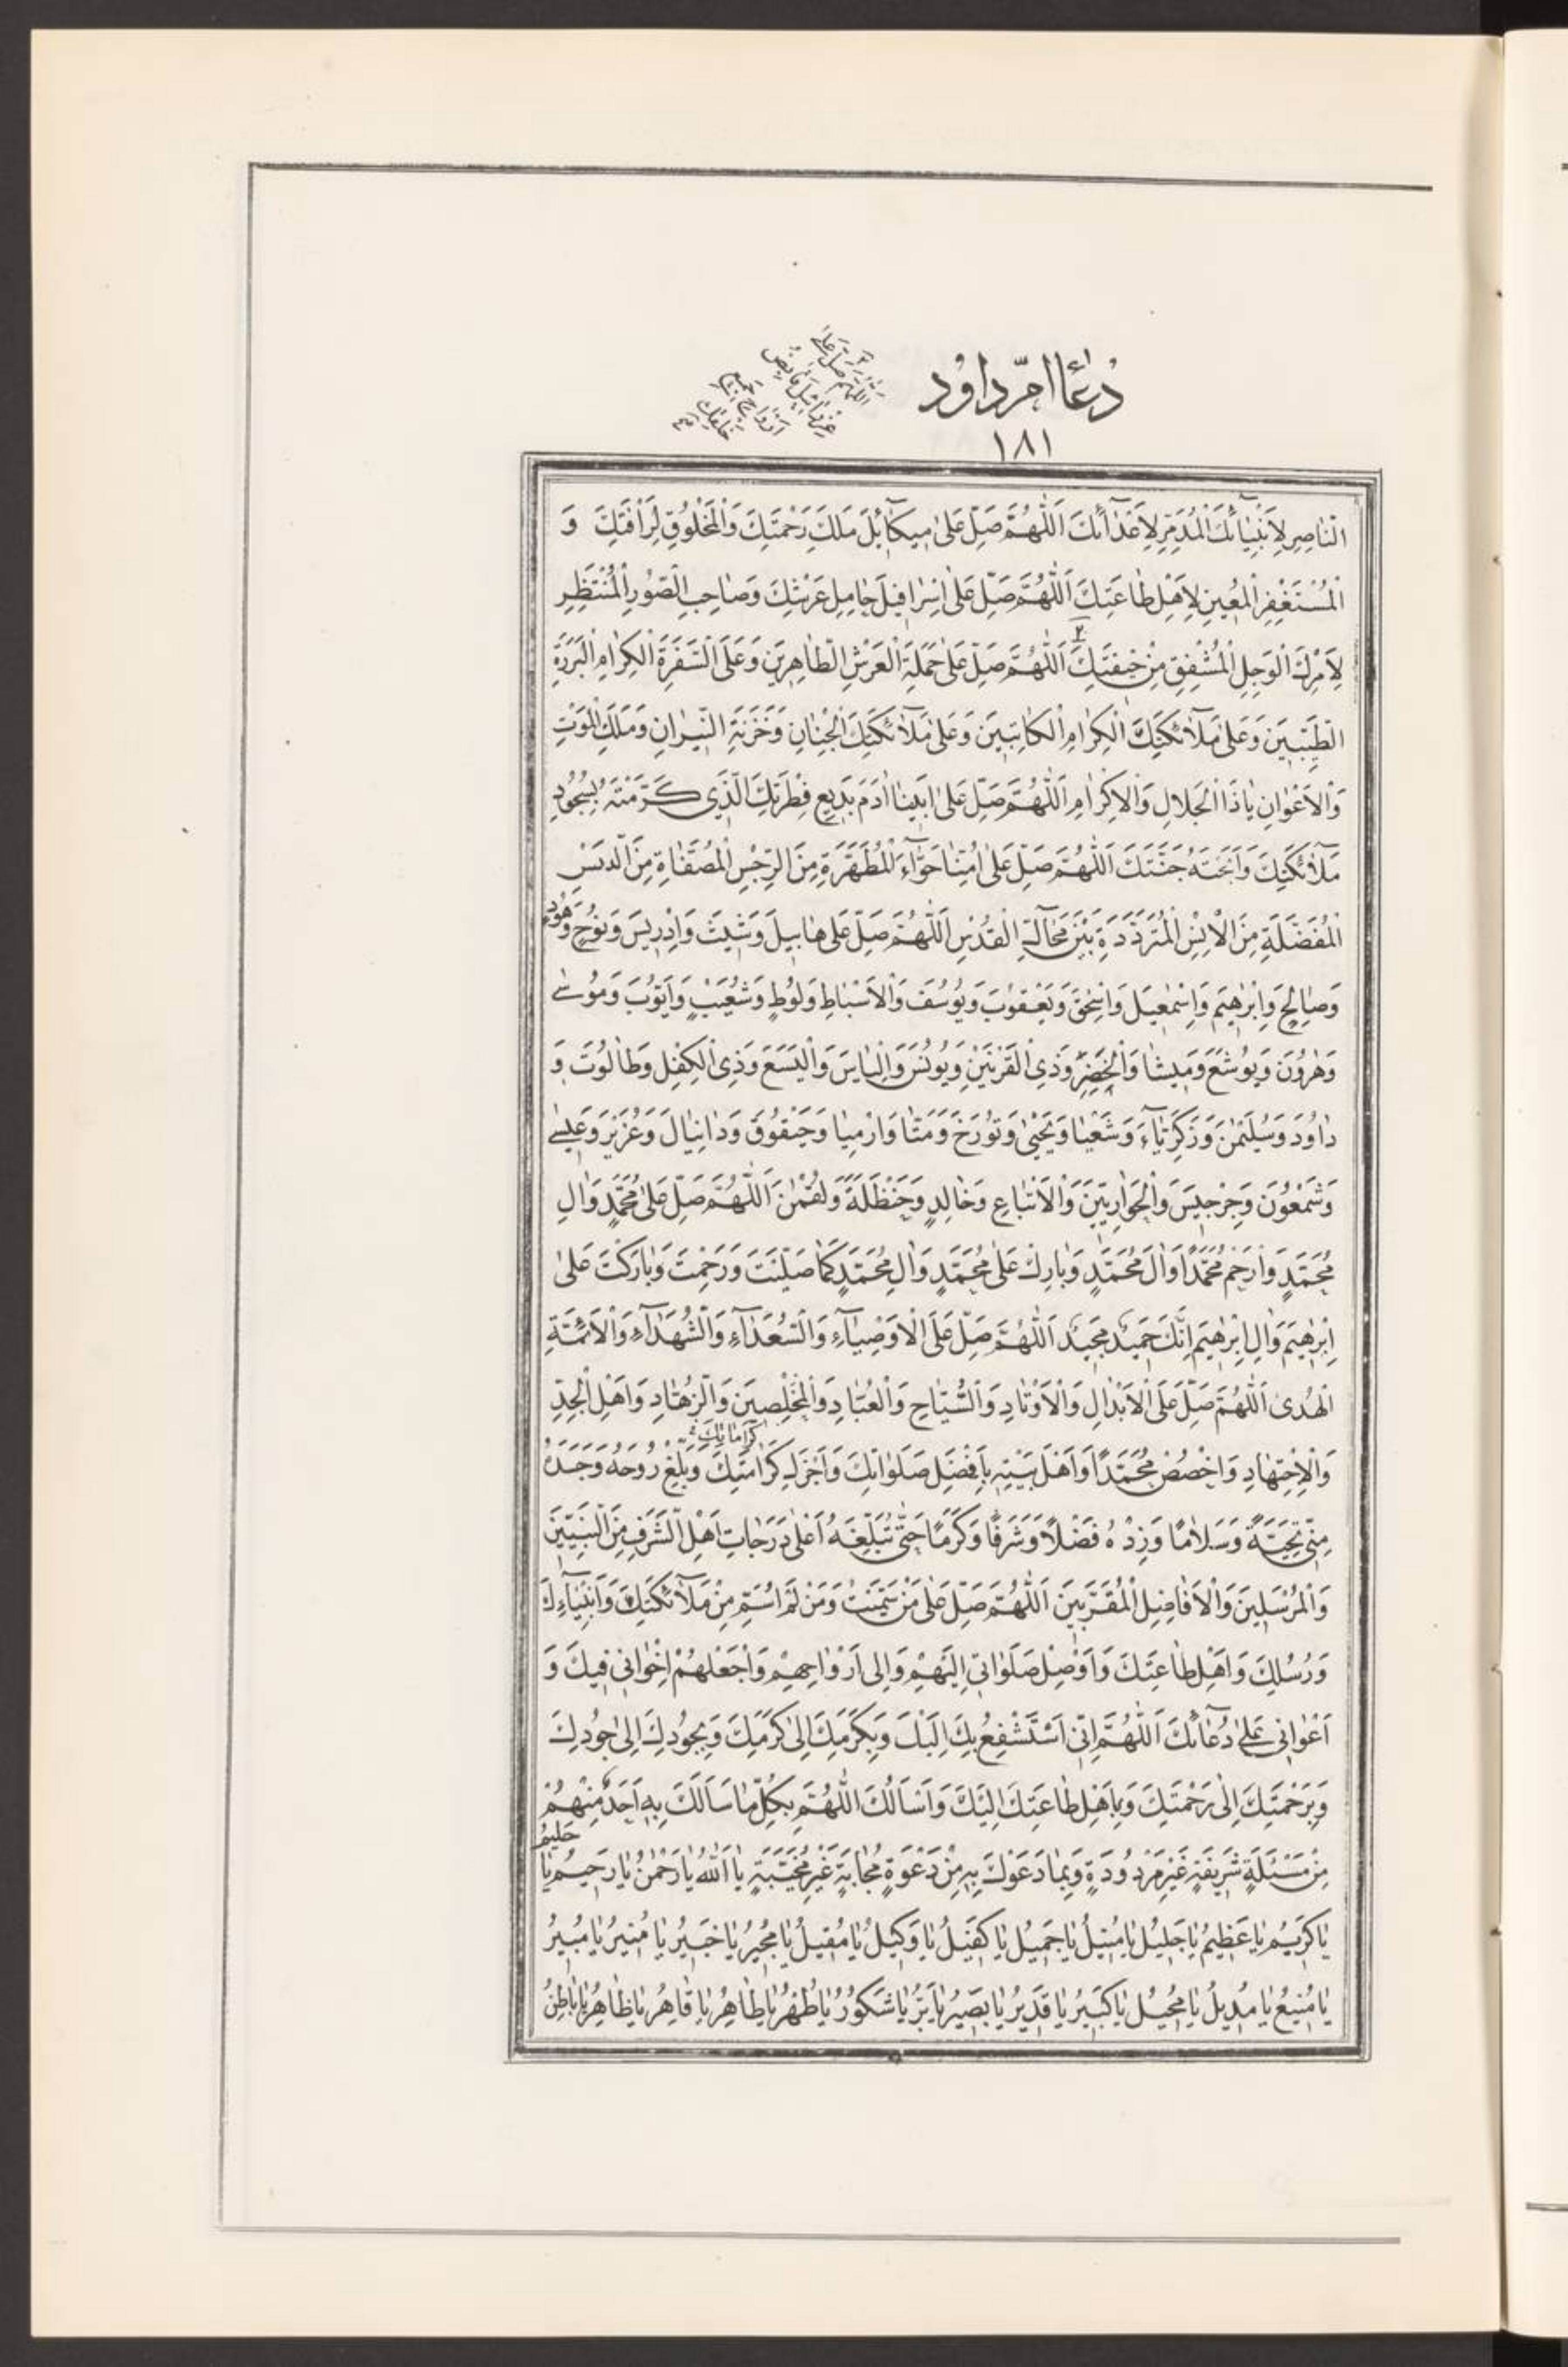 دُعٰاءِ امّ داوُد
١٨١
اَللّٰهُمَّ صَلِّ عَلٰى
عِزْرٰائِيلَ قٰابِضِ
اَرْوٰاحِ
خَلْقِكَ
النّٰاصِرِ لِاَنْبِيٰآئِكَ الْمُدَمِّرِ لِاَعْدٰآئِكَ اَللّٰهُمَّ صَلِّ عَلىٰ مِيكٰآئِلَ مَلَكِ رَحْمَتِكَ وَالْمَخْلُوقِ لِرَاْفَتِكَ وَ
الْمُسْتَغْفِرِ الْمُعِينِ لِاَهْلِ طٰاعَتِكَ اَللّٰهُمَّ صَلِّ عَلىٰ اِسْرٰافِيلَ حٰامِلِ عَرْشِكَ وَصٰاحِبِ الصُّورِ الْمُنْتَظِرِ
لِاَمْرِكَ الْوَجِلِ الْمُشْفِقِ مِنْ خِيفَتِكَ اَللّٰهُمَّ صَلِّ عَلىٰ حَمَلَةِ الْعَرْشِ الطّٰاهِرِينَ وَعَلَى السَّفَرَةِ الْكِرٰامِ الْبَرَرَةِ
الطَّيِّبِينَ وَعَلىٰ مَلٰآئِكَتِكَ الْكِرٰامِ الْكٰاتِبِينَ وَعَلىٰ مَلٰآئِكَتِكَ الْجِنٰانِ وَخَزَنَةِ النِّيرٰانِ وَمَلَكِ الْمَوْتِ
وَالْاَعْوٰانِ يٰاذَا الْجَلٰالِ وَالْاِكْرٰامِ اَللّٰهُمَّ صَلِّ عَلىٰ اَبِينٰا اٰدَمَ بَدِيعِ فِطْرَتِكَ الَّذِى كَرَّمْتَهُ بِسُجُودِ
مَلٰآئِكَتِكَ وَاَبَحْتَهُ جَنَّتَكَ اَللّٰهُمَّ صَلِّ عَلىٰ اُمِّنٰا حَوّٰآءَ الْمُطَهَّرَةِ مِنَ الرِّجْسِ الْمُصَفّٰاةِ مِنَ الدَّنَسِ
الْمُفَضَّلَةِ مِنَ الْاِنْسِ الْمُتَرَدِّدَةِ بَيْنَ مَحٰآلِّ الْقُدْسِ اَللّٰهُمَّ صَلِّ عَلىٰ هٰابِيلَ وَشَيْثَ وَاِدْرِيسَ وَنُوحٍ وَهُودٍ
وَصٰالِحٍ وَاِبْرٰهِيمَ وَاِسْمٰعِيلَ وَاِسْحٰقَ وَيَعْقُوبَ وَيُوسُفَ وَالْاَسْبٰاطِ وَلُوطٍ وَشُعَيْبٍ وَاَيُّوبَ وَمُوسىٰ
وَهٰرُونَ وَيُوشَعَ وَمِيشٰا وَالْخِضْرِ وَذِى الْقَرْنَيْنِ وَيُونُسَ وَاِلْيٰاسَ وَالْيَسَعَ وَذِى الْكِفْلِ وَطٰالُوتَ وَ
دٰاوُدَ وَسُلَيْمٰنَ وَزَكَرِيّٰآءَ وَشَعْيٰا وَيَحْيىٰ وَتُورَخَ وَمَتّٰا وَارْمِيٰا وَحَيْقُوقَ وَدٰانِيٰالَ وَعُزَيْرٍ وَعِيسىٰ
وَشَمْعُونَ وَجِرْجِيسَ وَالْحَوٰارِيِّينَ وَالْاَتْبٰاعِ وَخٰالِدٍ وَحَنْظَلَةَ وَلُقْمٰنَ اَللّٰهُمَّ صَلِّ عَلىٰ مُحَمَّدٍ وَاٰلِ
مُحَمَّدٍ وَارْحَمْ مُحَمَّدًا وَاٰلَ مُحَمَّدٍ وَبٰارِكْ عَلىٰ مُحَمَّدٍ وَاٰلِ مُحَمَّدٍ كَمٰا صَلَّيْتَ وَرَحِمْتَ وَبٰارَكْتَ عَلىٰ
اِبْرٰهِيمَ وَاٰلِ اِبْرٰهِيمَ اِنَّكَ حَمِيدٌ مَجِيدٌ اَللّٰهُمَّ صَلِّ عَلَى الْاَوْصِيٰآءِ وَالسُّعَدٰآءِ وَالشُّهَدٰآءِ وَالْاَئِمَّةِ
الْهُدىٰ اَللّٰهُمَّ صَلِّ عَلَى الْاَبْدٰالِ وَالْاَوْتٰادِ وَالسُّيّٰاحِ وَالْعُبّٰادِ وَالْمُخْلِصِينَ وَالزُّهّٰادِ وَاَهْلِ الْجِدِّ
كَرٰامٰاتِكَ
وَالْاِجْتِهٰادِ وَاخْصُصْ مُحَمَّدًا وَاَهْلَ بَيْتِهِ بِاَفْضَلِ صَلَوٰاتِكَ وَاَجْزَلِ كَرٰامَتِكَ وَبَلِّغْ رُوحَهُ وَجَسَدَهُ
مِنّى تَحِيَّةً وَسَلٰامًا وَزِدْهُ فَضْلًا وَشَرَفًا وَكَرَمًا حَتّىٰ تُبَلِّغَهُ اَعْلىٰ دَرَجٰاتِ اَهْلِ الشَّرَفِ مِنَ النَّبِيِّينَ
وَالْمُرْسَلِينَ وَالْاَفٰاضِلِ الْمُقَرَّبِينَ اَللّٰهُمَّ صَلِّ عَلىٰ مَنْ سَمَّيْتُ وَمَنْ لَمْ اُسَمِّ مِنْ مَلٰآئِكَتِكَ وَاَنْبِيٰآءِكَ
وَرُسُلِكَ وَاَهْلِ طٰاعَتِكَ وَاَوْصِلْ صَلَوٰاتى اِلَيْهِمْ وَاِلىٰ اَرْوٰاحِهِمْ وَاجْعَلْهُمْ اِخْوٰانى فِيكَ وَ
اَعْوٰانى عَلىٰ دُعٰآئِكَ اَللّٰهُمَّ اِنّى اَسْتَشْفِعُ بِكَ اِلَيْكَ وَبِكَرَمِكَ اِلىٰ كَرَمِكَ وَبِجُودِكَ اِلىٰ جُودِكَ
وَبِرَحْمَتِكَ اِلىٰ رَحْمَتِكَ وَبِاَهْلِ طٰاعَتِكَ اِلَيْكَ وَاَسْاَلُكَ اللّٰهُمَّ بِكُلِّ مٰا سَاَلَكَ بِهِ اَحَدٌ مِنْهُمْ
حَلِيمُ
مِنْ مَسْئَلَةٍ شَرِيفَةٍ غَيْرِ مَرْدُودَةٍ وَبِمٰا دَعَوْكَ بِهِ مِنْ دَعْوَةٍ مُجٰابَةٍ غَيْرِ مُخَيَّبَةٍ يٰا اَللّٰهُ يٰا رَحْمٰنُ يٰا رَحِيمُ يٰا
يٰا كَرِيمُ يٰا عَظِيمُ يٰا جَلِيلُ يٰا مُنِيلُ يٰا جَمِيلُ يٰا كَفِيلُ يٰا وَكِيلُ يٰا مُقِيلُ يٰا مُجِيرُ يٰا خَبِيرُ يٰا مُنِيرُ يٰا مُبِيرُ
يٰا مَنِيعُ يٰا مُدِيلُ يٰا مُحِيلُ يٰا كَبِيرُ يٰا قَدِيرُ يٰا بَصِيرُ يٰا بَرُّ يٰا شَكُورُ يٰا طُهْرُ يٰا طٰاهِرُ يٰا قٰاهِرُ يٰا ظٰاهِرُ يٰا بٰاطِنُ